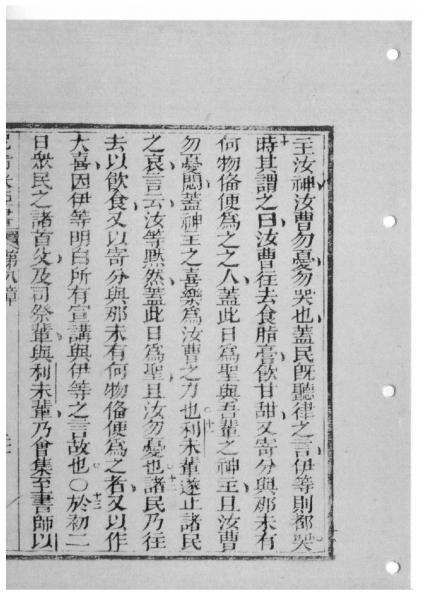 主汝神汝曹勿憂勿哭也蓋民既聽律之言伊等則都哭
十時其謂之曰汝曹往去食脂膏飲甘甜又寄分與那未有
何物偹便為之之人蓋此日為聖與吾輩之神主且汝曹
勿憂悶蓋神主之喜樂為汝曹之力也十一利未輩遂止諸民
之哀言云汝等黙然蓋此日為聖且汝勿憂也十二諸民乃往
去以飲食又以寄分與那未有何物偹便為之者又以作
大喜因伊等明白所有宣講與伊等之言故也○十三於初二
日衆民之諸首父及司祭輩與利未輩乃會集至書師以
第八章